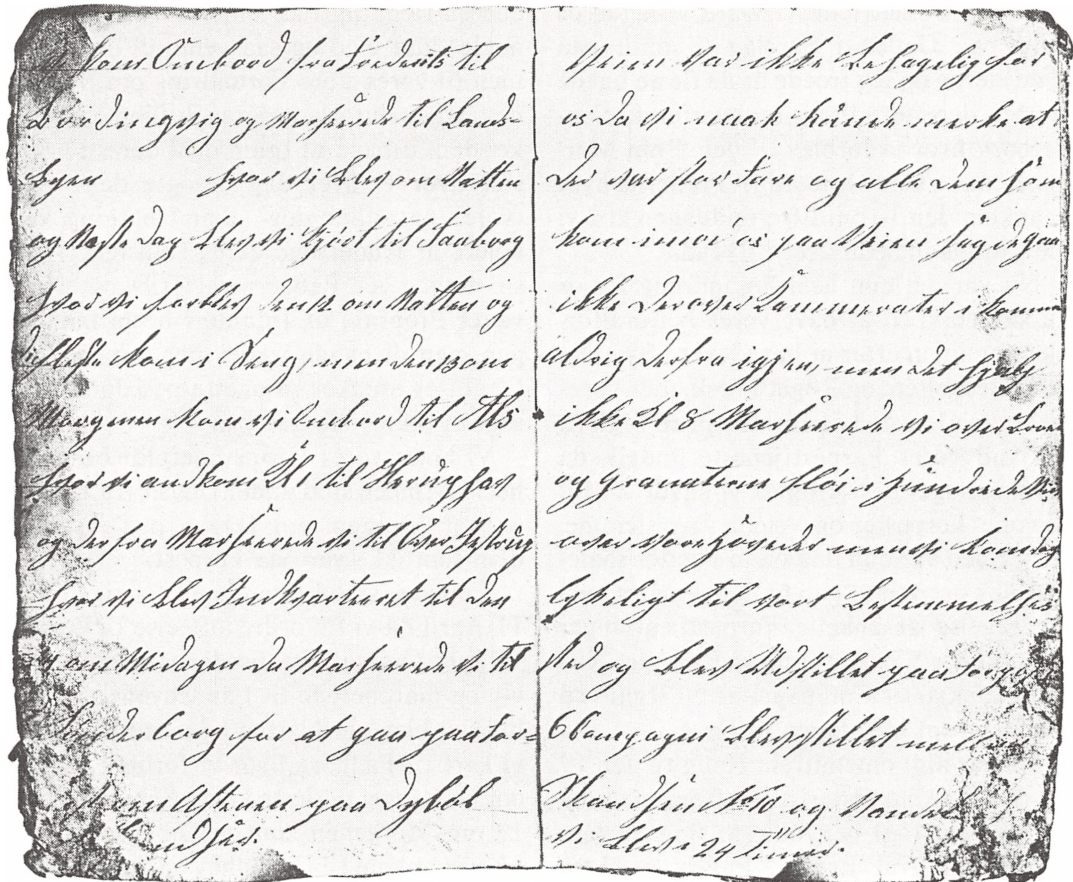 Kom Ombord fra Fredorits til
Bordingvig og Marserede til Lands-
Byen hvor vi Blev om Natten
og Næste Dag Blev vi kjört til Faaborg
hvor vi forblev Denß om Natten og
de fleste kom i Seng, men Denßom
Morgenen kom vi Ombord til Als
hvor vi andkom Kl 1 til Hörughav
og Derfra Marserede vi til Över
hvor vi Blev Indkvarteret til Den
om Midagen Da Marserede vi til
Sönderborg for at gaa paa For-
Aftenen paa Dyböl

Veien var ikke Behagelig for
os Da vi naak kunde merke at
Der var stor Fare og alle Dem som
kom imod os paa Veien sagde gaa
ikke Derover Kammerater i Kommer
Aldrig Derfra igjen, men Det hjalp
ikke Kl 8 Marserede vi over Broen
og Granaterne flöi i Hundrede
over vore Höveder men vi kom dog
lykeligt til vort Bestemmelses
sted og Blev Udstillet paa Forpost
6 Compagni Blev stillet mellem
Skandsen No 10 og Vandet
Vi Blev 24 Timer.